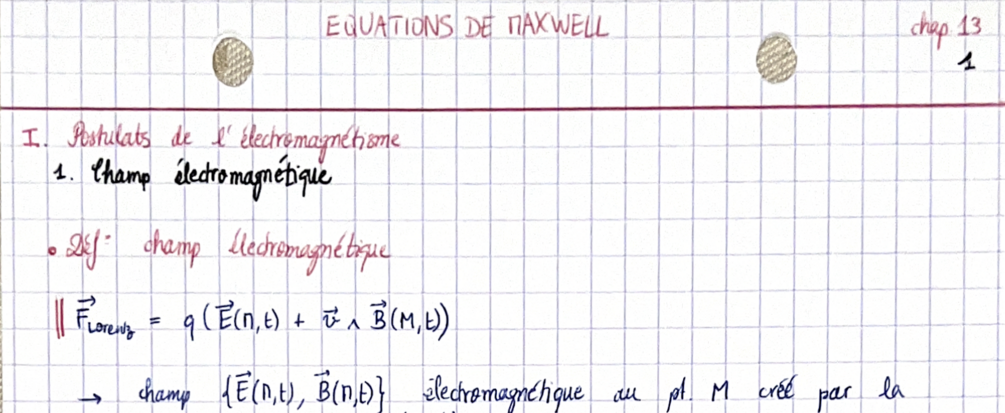 EQUATIONS DE MAXWELL
chap. 13
1
I. Postulats de l'électromagnétisme
1. Champ électromagnétique
• Déf: champ électromagnétique
|| F⃗Lorentz = q (E⃗(M,t) + v⃗ ∧ B⃗(M,t))
→ champ {E⃗(M,t), B⃗(M,t)} électromagnétique au pt. M créé par la